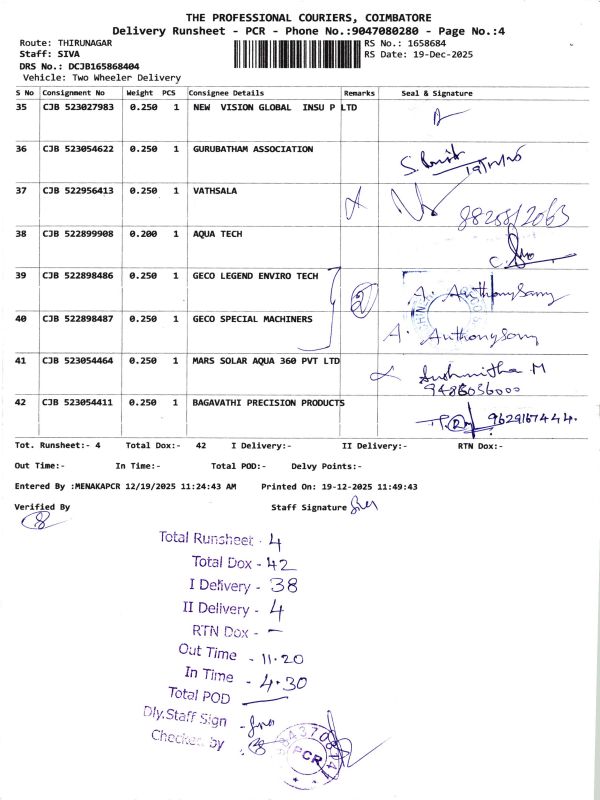 THE PROFESSIONAL COURIERS, COIMBATORE
Delivery Runsheet - PCR - Phone No.:9047080280 - Page No.:4
Route: THIRUNAGAR RS No.: 1658684
Staff: SIVA RS Date: 19-Dec-2025
DRS No.: DCJB165868404
Vehicle: Two Wheeler Delivery
S No Consignment No Weight PCS Consignee Details Remarks Seal & Signature
35 CJB 523027983 0.250 1 NEW VISION GLOBAL INSU P LTD
36 CJB 523054622 0.250 1 GURUBATHAM ASSOCIATION
37 CJB 522956413 0.250 1 VATHSALA
38 CJB 522899908 0.200 1 AQUA TECH
39 CJB 522898486 0.250 1 GECO LEGEND ENVIRO TECH 2 A. AnthonySamy
40 CJB 522898487 0.250 1 GECO SPECIAL MACHINERS A. AnthonySamy
41 CJB 523054464 0.250 1 MARS SOLAR AQUA 360 PVT LTD Sushmitha M
9486036000
42 CJB 523054411 0.250 1 BAGAVATHI PRECISION PRODUCTS 9629167444.
Tot. Runsheet:- 4 Total Dox:- 42 I Delivery:- II Delivery:- RTN Dox:-
Out Time:- In Time:- Total POD:- Delvy Points:-
Entered By :MENAKAPCR 12/19/2025 11:24:43 AM Printed On: 19-12-2025 11:49:43
Verified By Staff Signature
Total Runsheet - 4
Total Dox - 42
I Delivery - 38
II Delivery - 4
RTN Dox - —
Out Time - 11.20
In Time - 4.30
Total POD
Dly.Staff Sign -
Checked by
PCR